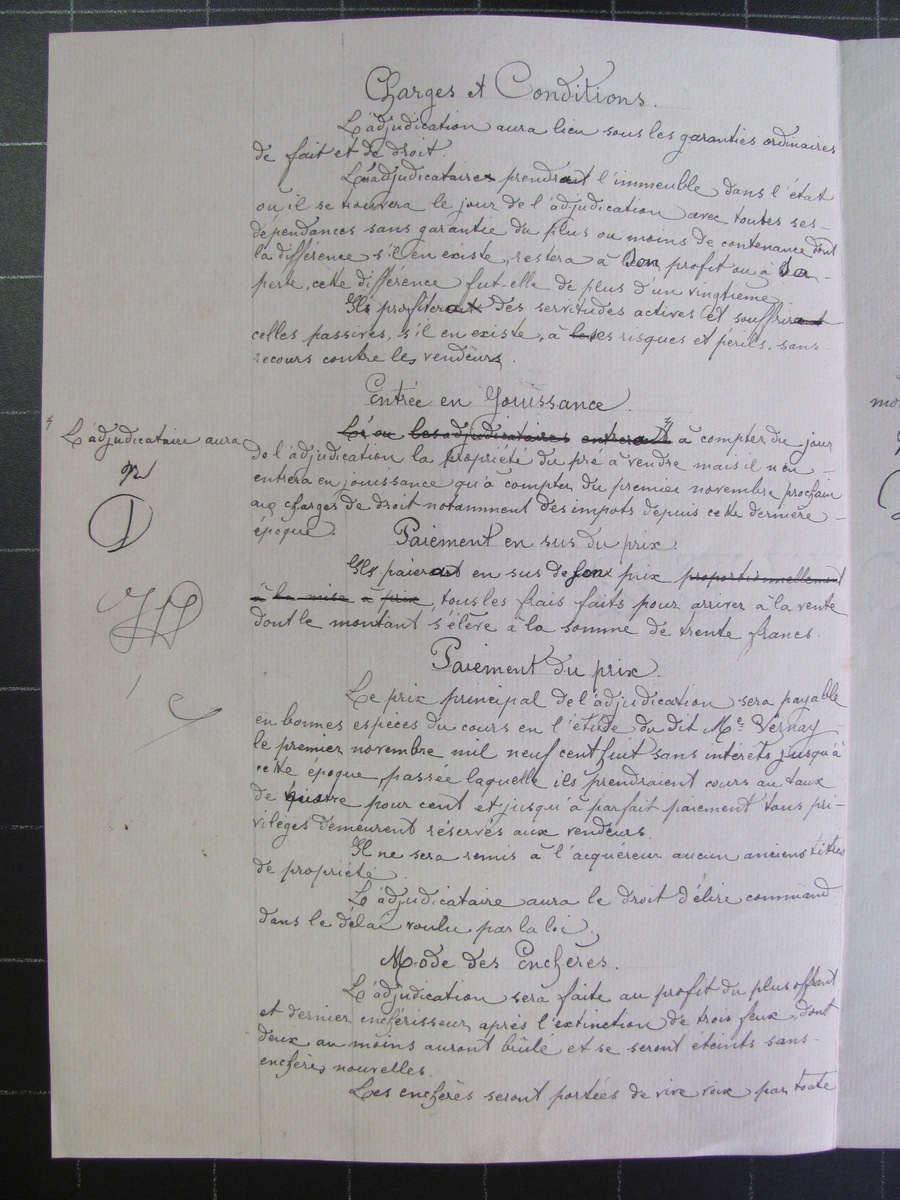 Charges et Conditions.
L'adjudication aura lieu sous les garanties ordinaires
de fait et de droit.
L'adjudicataire prendra l'immeuble dans l'état
ou il se trouvera le jour de l'adjudication avec toutes ses
dépendances sans garantie du plus ou moins de contenance dont
la différence s'il en existe, restera à son profit ou à sa
perte, cette différence fut-elle de plus d'un vingtième.
Il profitera des servitudes actives et souffrira
celles passives, s'il en existe, à ses risques et périls, sans
recours contre les vendeurs.
Entrée en Jouissance.
L'adjudicataire aura
Le ou les adjudicataires entreront à compter du jour
de l'adjudication la propriété du pré à vendre mais il n'en
entrera en jouissance qu'à compter du premier novembre prochain
aux charges de droit notamment des impots depuis cette dernière
époque.
Paiement en sus du prix.
Il paiera en sus de son prix proportionnellement
à la mise à prix, tous les frais faits pour arriver à la vente
dont le montant s'élève à la somme de trente francs.
Paiement du prix.
Le prix principal de l'adjudication sera payable
en bonnes espèces du cours en l'étude du dit Me Vernay
le premier novembre mil neuf cent huit sans intérêts jusqu'à
cette époque, passée laquelle ils prendraient cours au taux
de pour cent et jusqu'à parfait paiement tous pri-
vilèges demeurent réservés aux vendeurs.
Il ne sera remis à l'acquéreur aucun anciens titres
de propriété.
L'adjudicataire aura le droit d'élire command
dans le délai voulu par la loi.
Mode des Enchères.
L'adjudication sera faite au profit du plus offrant
et dernier enchérisseur, après l'extinction de trois feux, dont
deux au moins auront brûlé et se seront éteints sans
enchères nouvelles.
Les enchères seront portées de vive voix par toute